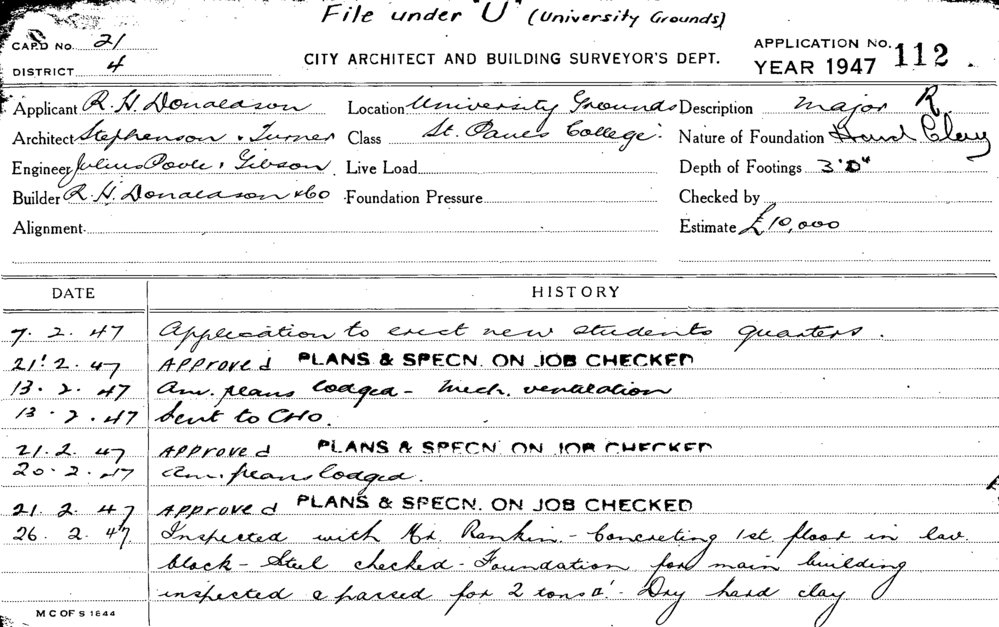 File under "U" (University Grounds)
CARD No. 21
DISTRICT 4
CITY ARCHITECT AND BUILDING SURVEYOR'S DEPT.
APPLICATION No. 112
YEAR 1947
Applicant R. H. Donaldson Location University Grounds Description major R
Architect Stephenson & Turner Class St. Paul's College. Nature of Foundation Hard Clay
Engineer Julius Poole & Gibson Live Load Depth of Footings 3'0"
Builder R. H. Donaldson & Co Foundation Pressure Checked by
Alignment Estimate £10,000
DATE HISTORY
7. 2. 47 Application to erect new students quarters.
21. 2. 47 Approved PLANS & SPECN. ON JOB CHECKED
13. 2. 47 Am. plans lodged - Mech. ventilation
13. 2. 47 Sent to CHO.
21. 2. 47 Approved PLANS & SPECN. ON JOB CHECKED
20. 2. 47 Am. plans lodged.
21. 2. 47 Approved PLANS & SPECN. ON JOB CHECKED
26. 2. 47 Inspected with Mr. Rankin - Concreting 1st floor in lav.
block - Steel checked - Foundation for main building
inspected & passed for 2 tons - Dry hard clay
M C OF S 1844